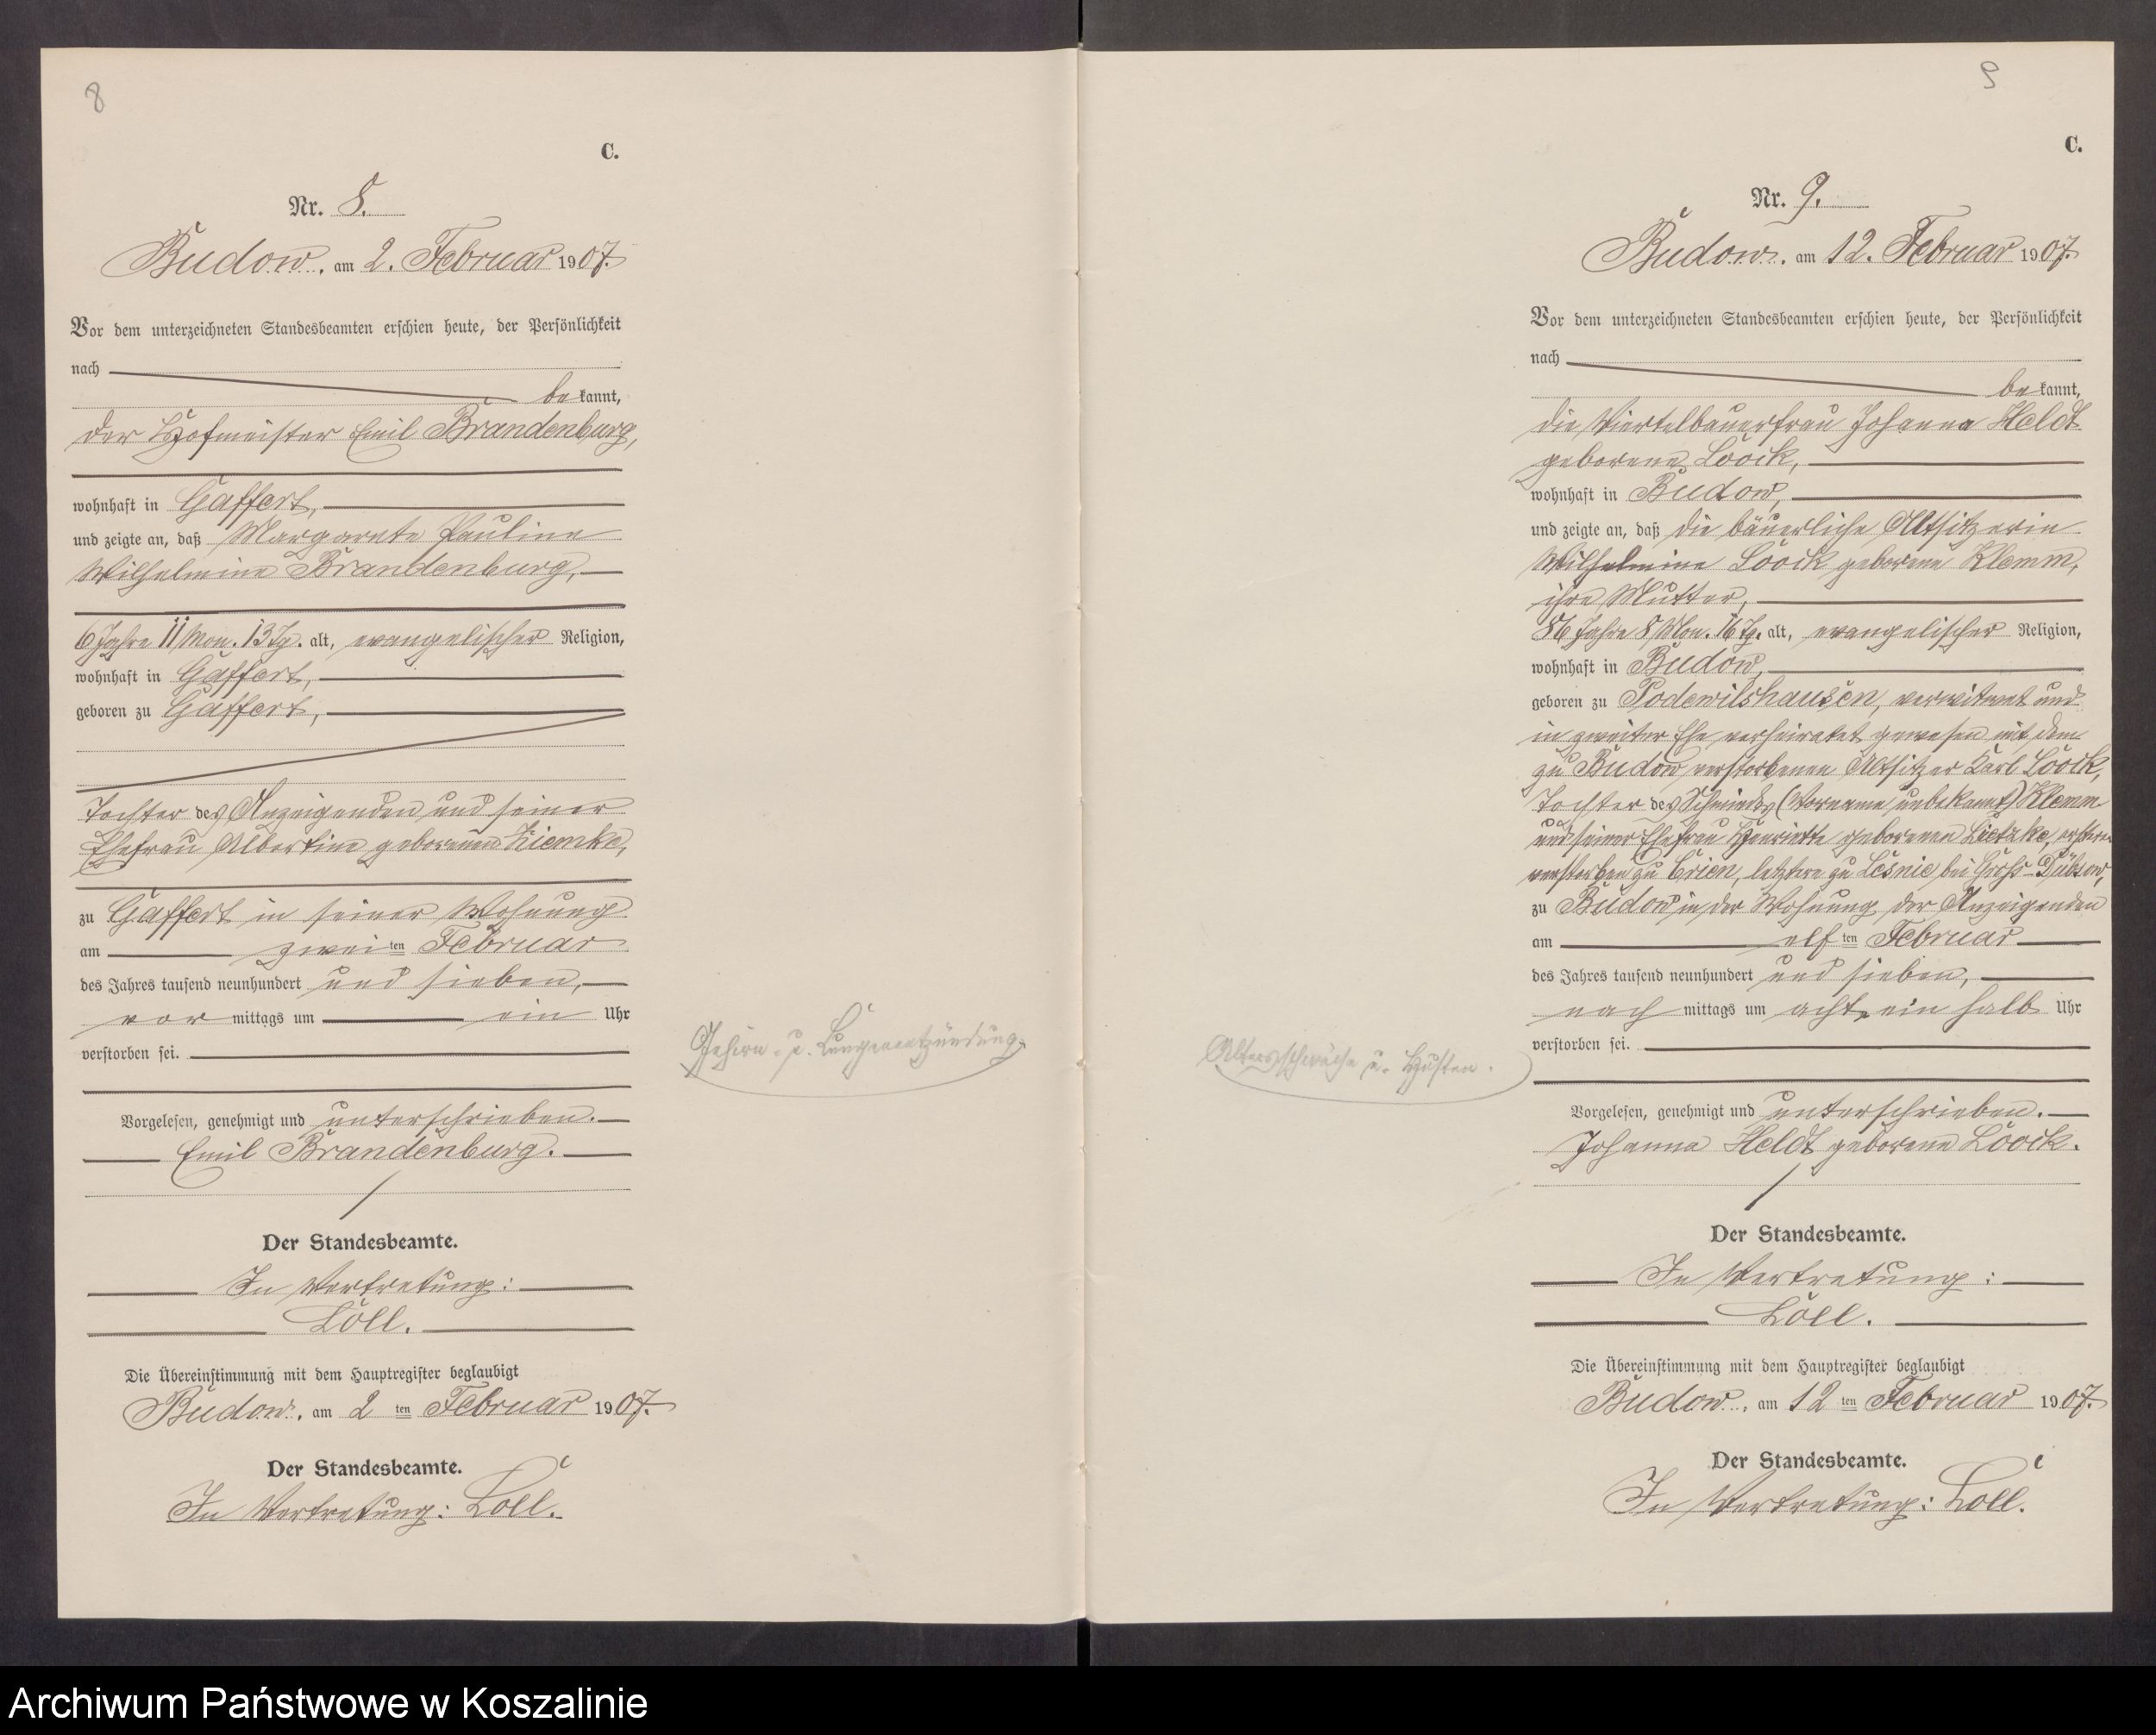 8
C.
Nr. 8.
Budow, am 2. Februar 1907.
Vor dem unterzeichneten Standesbeamten erschien heute, der Persönlichkeit
nach
be kannt,
der Hofmeister Emil Brandenburg,
wohnhaft in Gaffert,
und zeigte an, daß Margarete Pauline
Wilhelmine Brandenburg,
6 Jahre 11 Mon. 13 Tg. alt, evangelischer Religion,
wohnhaft in Gaffert,
geboren zu Gaffert,
Tochter des Anzeigenden und seiner
Ehefrau Albertine geborenen Ziemke,
zu Gaffert in seiner Wohnung
am zwei ten Februar
des Jahres tausend neunhundert und sieben,
vor mittags um ein Uhr
verstorben sei.
Vorgelesen, genehmigt und unterschrieben.
Emil Brandenburg.
Der Standesbeamte.
In Vertretung:
Löll.
Die Übereinstimmung mit dem Hauptregister beglaubigt
Budow, am 2 ten Februar 1907.
Der Standesbeamte.
In Vertretung: Löll.
Gehirn- u. Lungenentzündung.
9
C.
Nr. 9.
Budow, am 12. Februar 1907.
Vor dem unterzeichneten Standesbeamten erschien heute, der Persönlichkeit
nach
be kannt,
die Viertelbauerfrau Johanna Heldt
geborene Loock,
wohnhaft in Budow,
und zeigte an, daß die bäuerliche Altsitzerin
Wilhelmine Loock geborene Klemm,
ihre Mutter,
86 Jahre 8 Mon. 16 Tg. alt, evangelischer Religion,
wohnhaft in Budow,
geboren zu Podewilshausen, verwitwet und
in zweiter Ehe verheiratet gewesen mit dem
zu Budow verstorbenen Altsitzer Karl Loock,
Tochter des Schmieds (Vorname unbekannt) Klemm
und seiner Ehefrau Henriette geborenen Lietzke, ersterer
verstorben zu Crien, letztere zu Lesnie bei Groß-Dübsow,
zu Budow in der Wohnung der Anzeigenden
am elf ten Februar
des Jahres tausend neunhundert und sieben,
nach mittags um acht ein halb Uhr
verstorben sei.
Vorgelesen, genehmigt und unterschrieben.
Johanna Heldt geborene Loock.
Der Standesbeamte.
In Vertretung:
Löll.
Die Übereinstimmung mit dem Hauptregister beglaubigt
Budow, am 12 ten Februar 1907.
Der Standesbeamte.
In Vertretung: Löll.
Altersschwäche u. Husten.
Archiwum Państwowe w Koszalinie